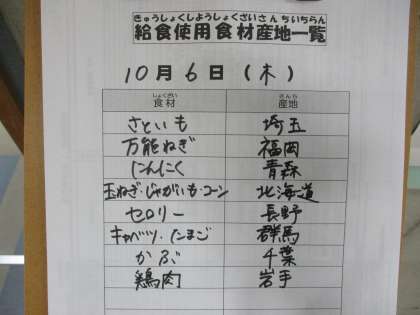 きゅうしょくしようしょくざいさんちいちらん
給食使用食材産地一覧
10月6日(木)
しょくざい さんち
食材 産地
さといも 埼玉
万能ねぎ 福岡
にんにく 青森
玉ねぎ・じゃがいも・コーン 北海道
セロリー 長野
キャベツ・たまご 群馬
かぶ 千葉
鶏肉 岩手